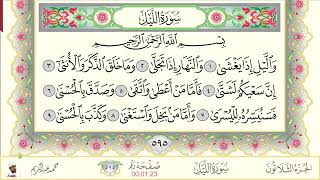 سُورَةُ اللَّيْلِ
بِسْمِ اللَّهِ الرَّحْمَٰنِ الرَّحِيمِ
وَاللَّيْلِ إِذَا يَغْشَىٰ ١ وَالنَّهَارِ إِذَا تَجَلَّىٰ ٢ وَمَا خَلَقَ الذَّكَرَ وَالْأُنثَىٰ ٣
إِنَّ سَعْيَكُمْ لَشَتَّىٰ ٤ فَأَمَّا مَنْ أَعْطَىٰ وَاتَّقَىٰ ٥ وَصَدَّقَ بِالْحُسْنَىٰ ٦
فَسَنُيَسِّرُهُ لِلْيُسْرَىٰ ٧ وَأَمَّا مَن بَخِلَ وَاسْتَغْنَىٰ ٨ وَكَذَّبَ بِالْحُسْنَىٰ ٩
٥٩٥
الجزء الثلاثون سورة الليل صفحة رقم ٥٩٥
00:01:23